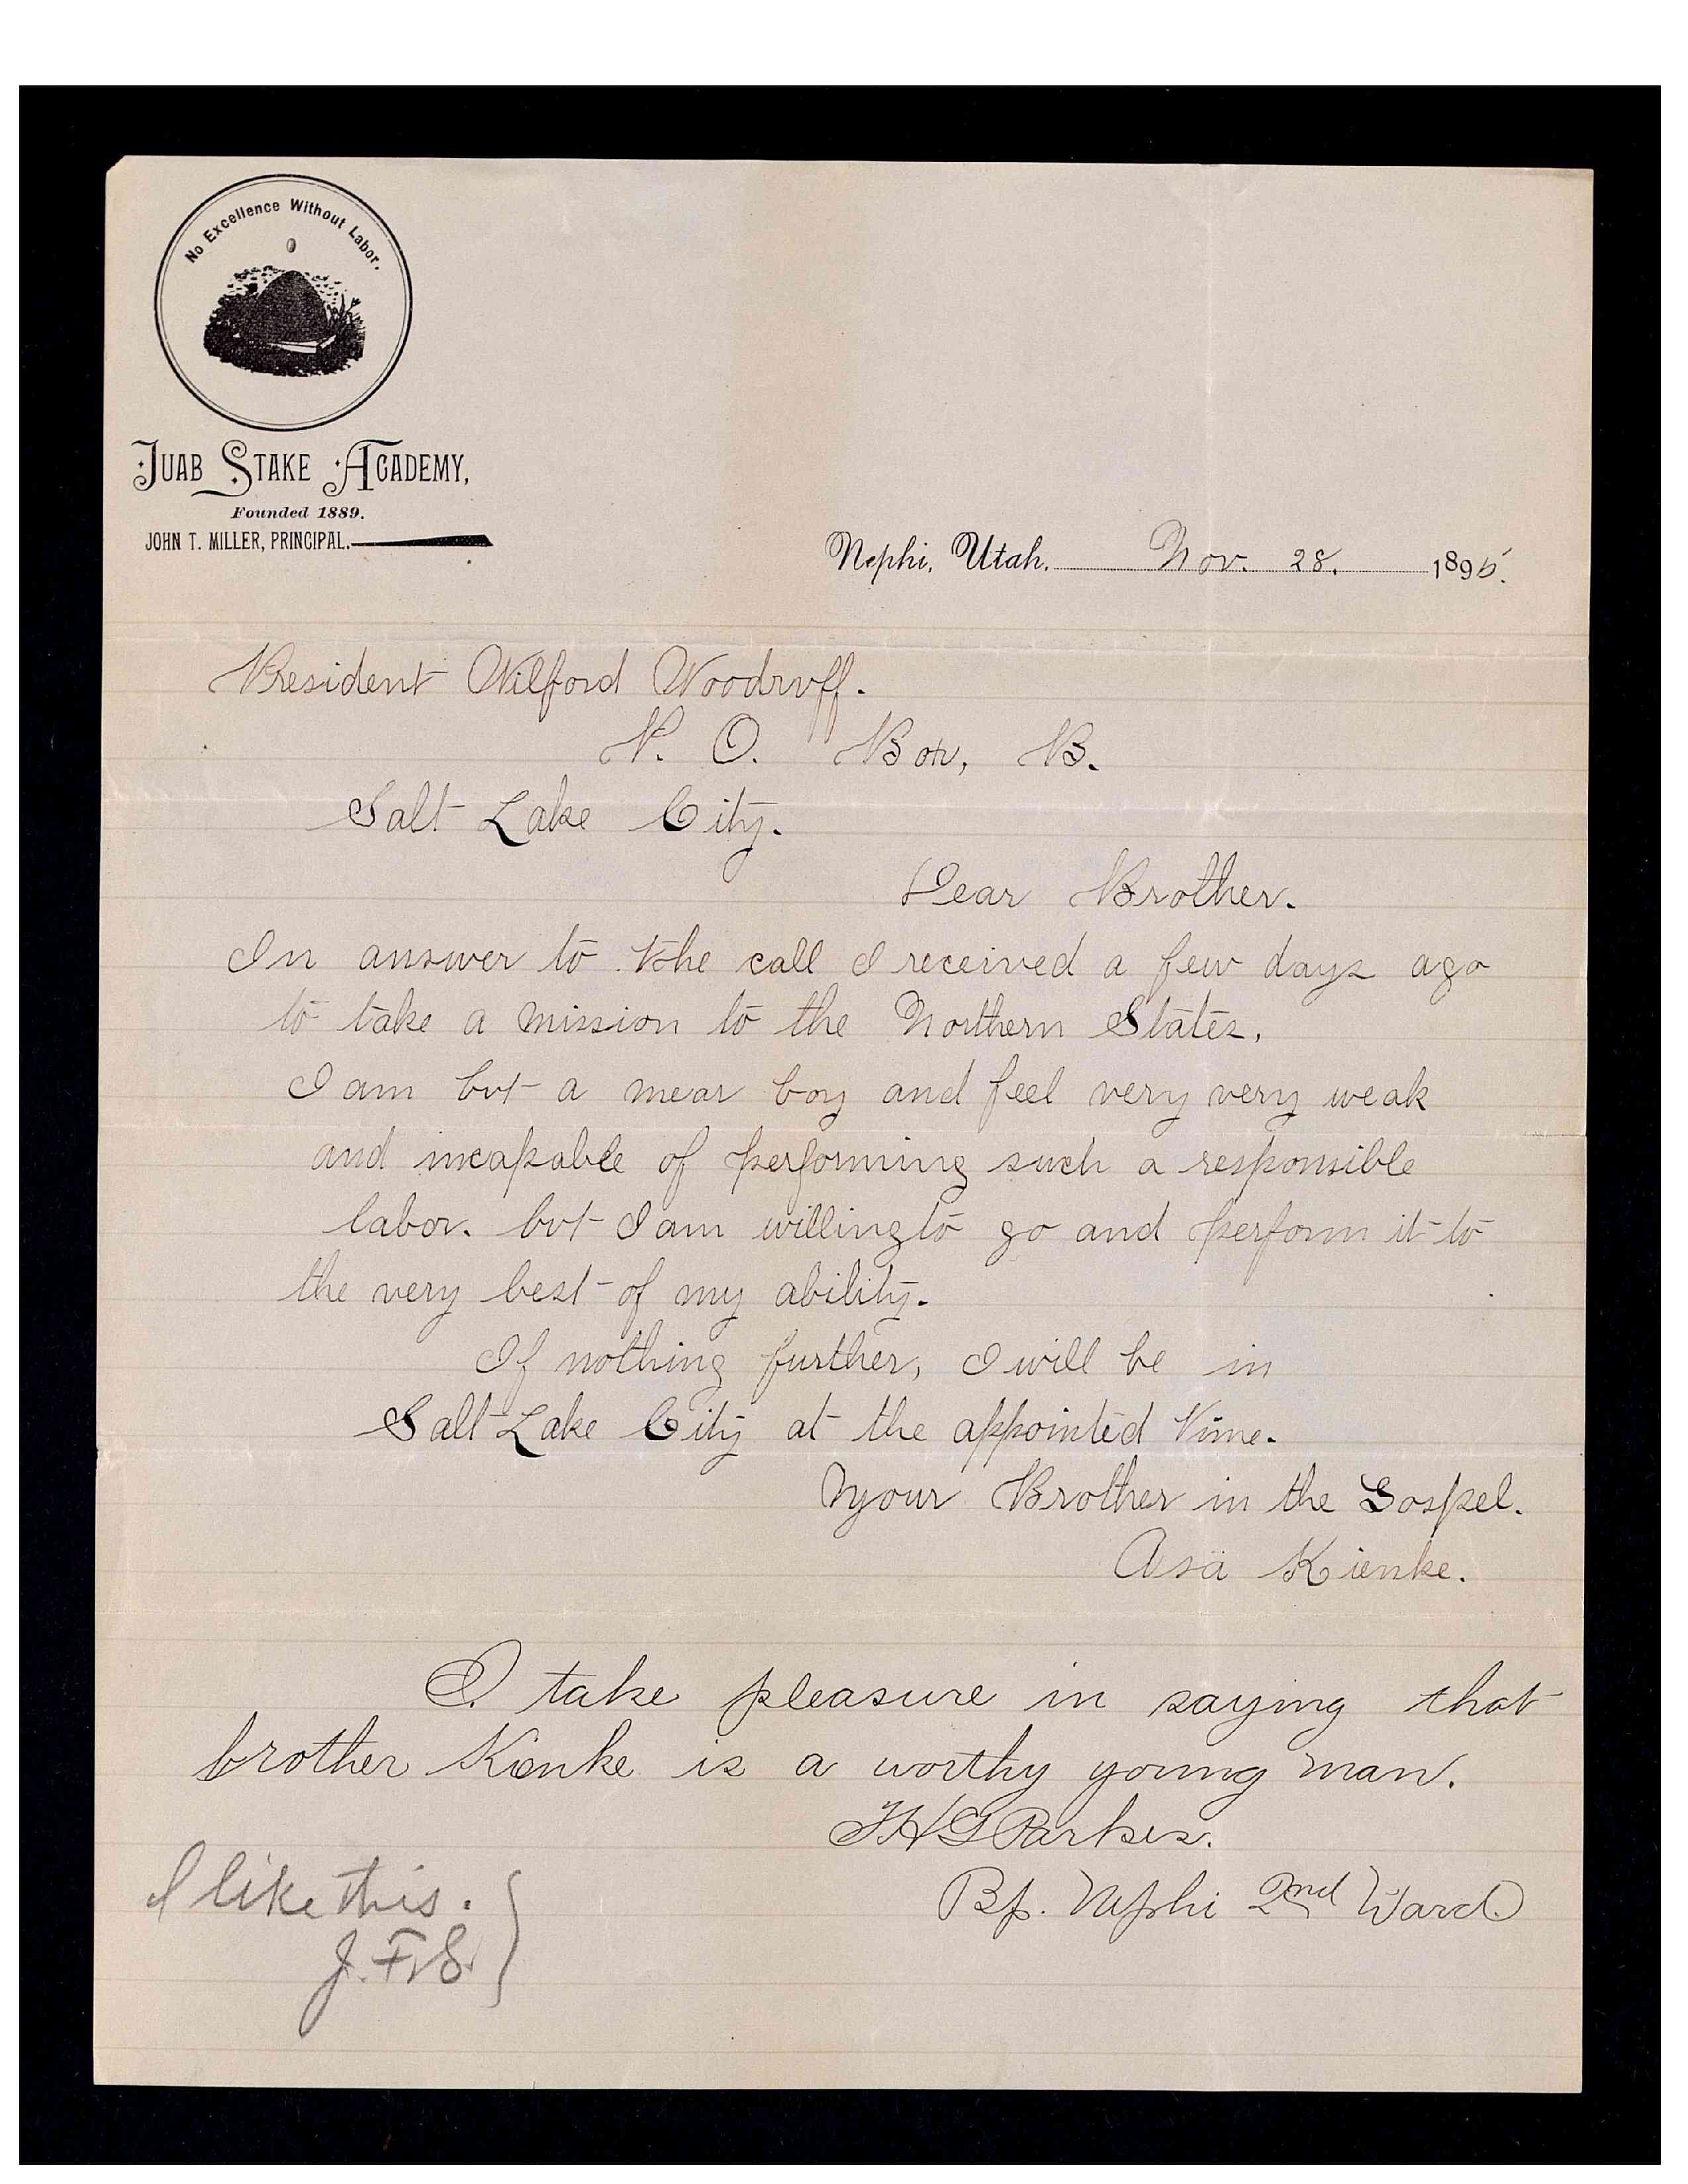 No Excellence Without Labor.
JUAB STAKE ACADEMY,
Founded 1889.
JOHN T. MILLER, PRINCIPAL.
Nephi, Utah, Nov. 28. 1895.
President Wilford Woodruff.
P. O. Box, B.
Salt Lake City.
Dear Brother.
In answer to the call I received a few days ago
to take a mission to the Northern States.
I am but a mear boy and feel very very weak
and incapable of performing such a responsible
labor. but I am willing to go and perform it to
the very best of my ability.
If nothing further, I will be in
Salt Lake City at the appointed time.
Your Brother in the Gospel.
Asa Kienke.
I take pleasure in saying that
brother Kienke is a worthy young man.
T H G Parkes.
Bp. Nephi 2nd Ward.
I like this.
J. F. S.